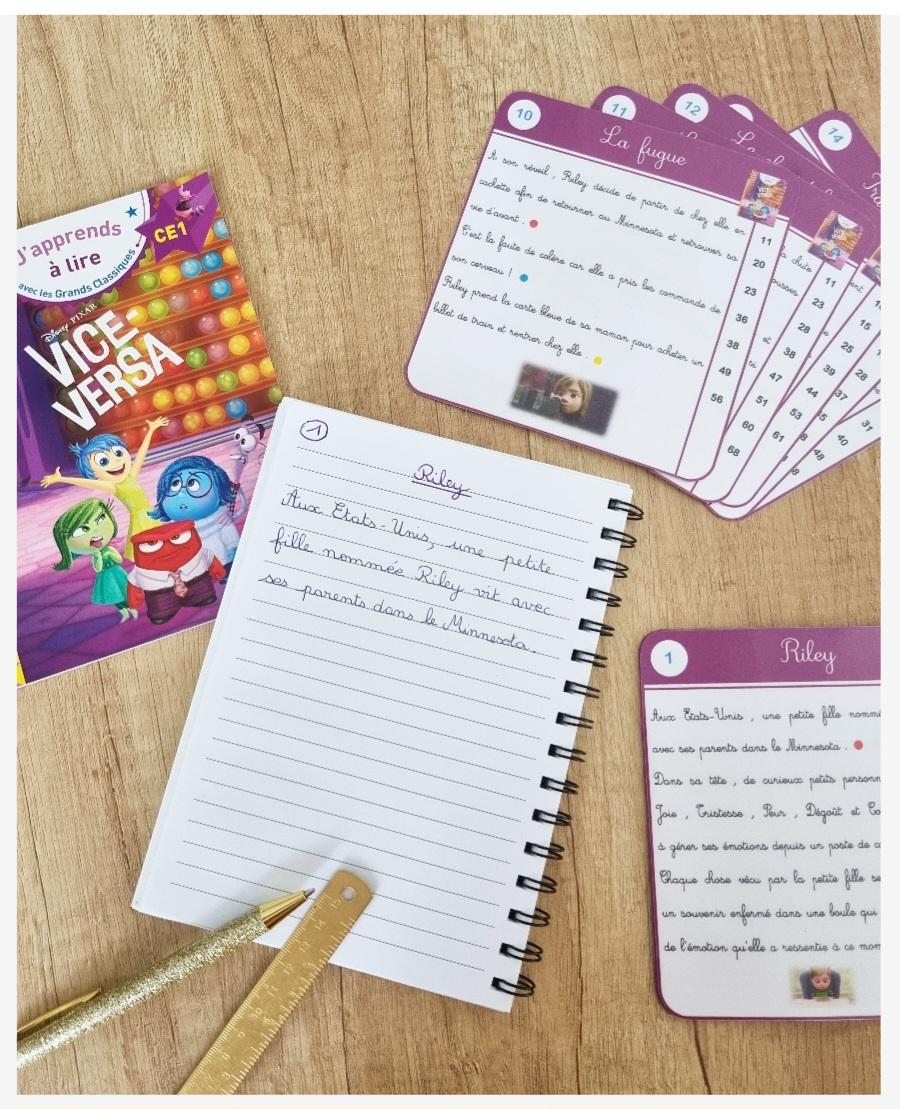 J'apprends
à lire
avec les Grands Classiques
CE1
Disney PIXAR
VICE-
VERSA
1
Riley
Aux Etats-Unis, une petite
fille nommée Riley vit avec
ses parents dans le Minnesota.
10
La fugue
A son réveil , Riley décide de partir de chez elle en
cachette afin de retourner au Minnesota et retrouver sa
vie d'avant .
C'est la faute de colère car elle a pris les commande de
son cerveau !
Riley prend la carte bleue de sa maman pour acheter un
billet de train et rentrer chez elle .
VICE-
VERSA
11
20
23
36
38
49
56
11
12
14
la chute
11
23
28
38
47
51
61
60
68
15
25
39
44
53
28
37
40
48
31
1
Riley
Aux Etats-Unis , une petite fille
avec ses parents dans le Minnesota .
Dans sa tête , de curieux petits
Joie , Tristesse , Peur , Dégoût et
à gérer ses émotions depuis un poste de
Chaque chose vécu par la petite fille
un souvenir enfermé dans une boule qui
de l'émotion qu'elle a ressentie à ce